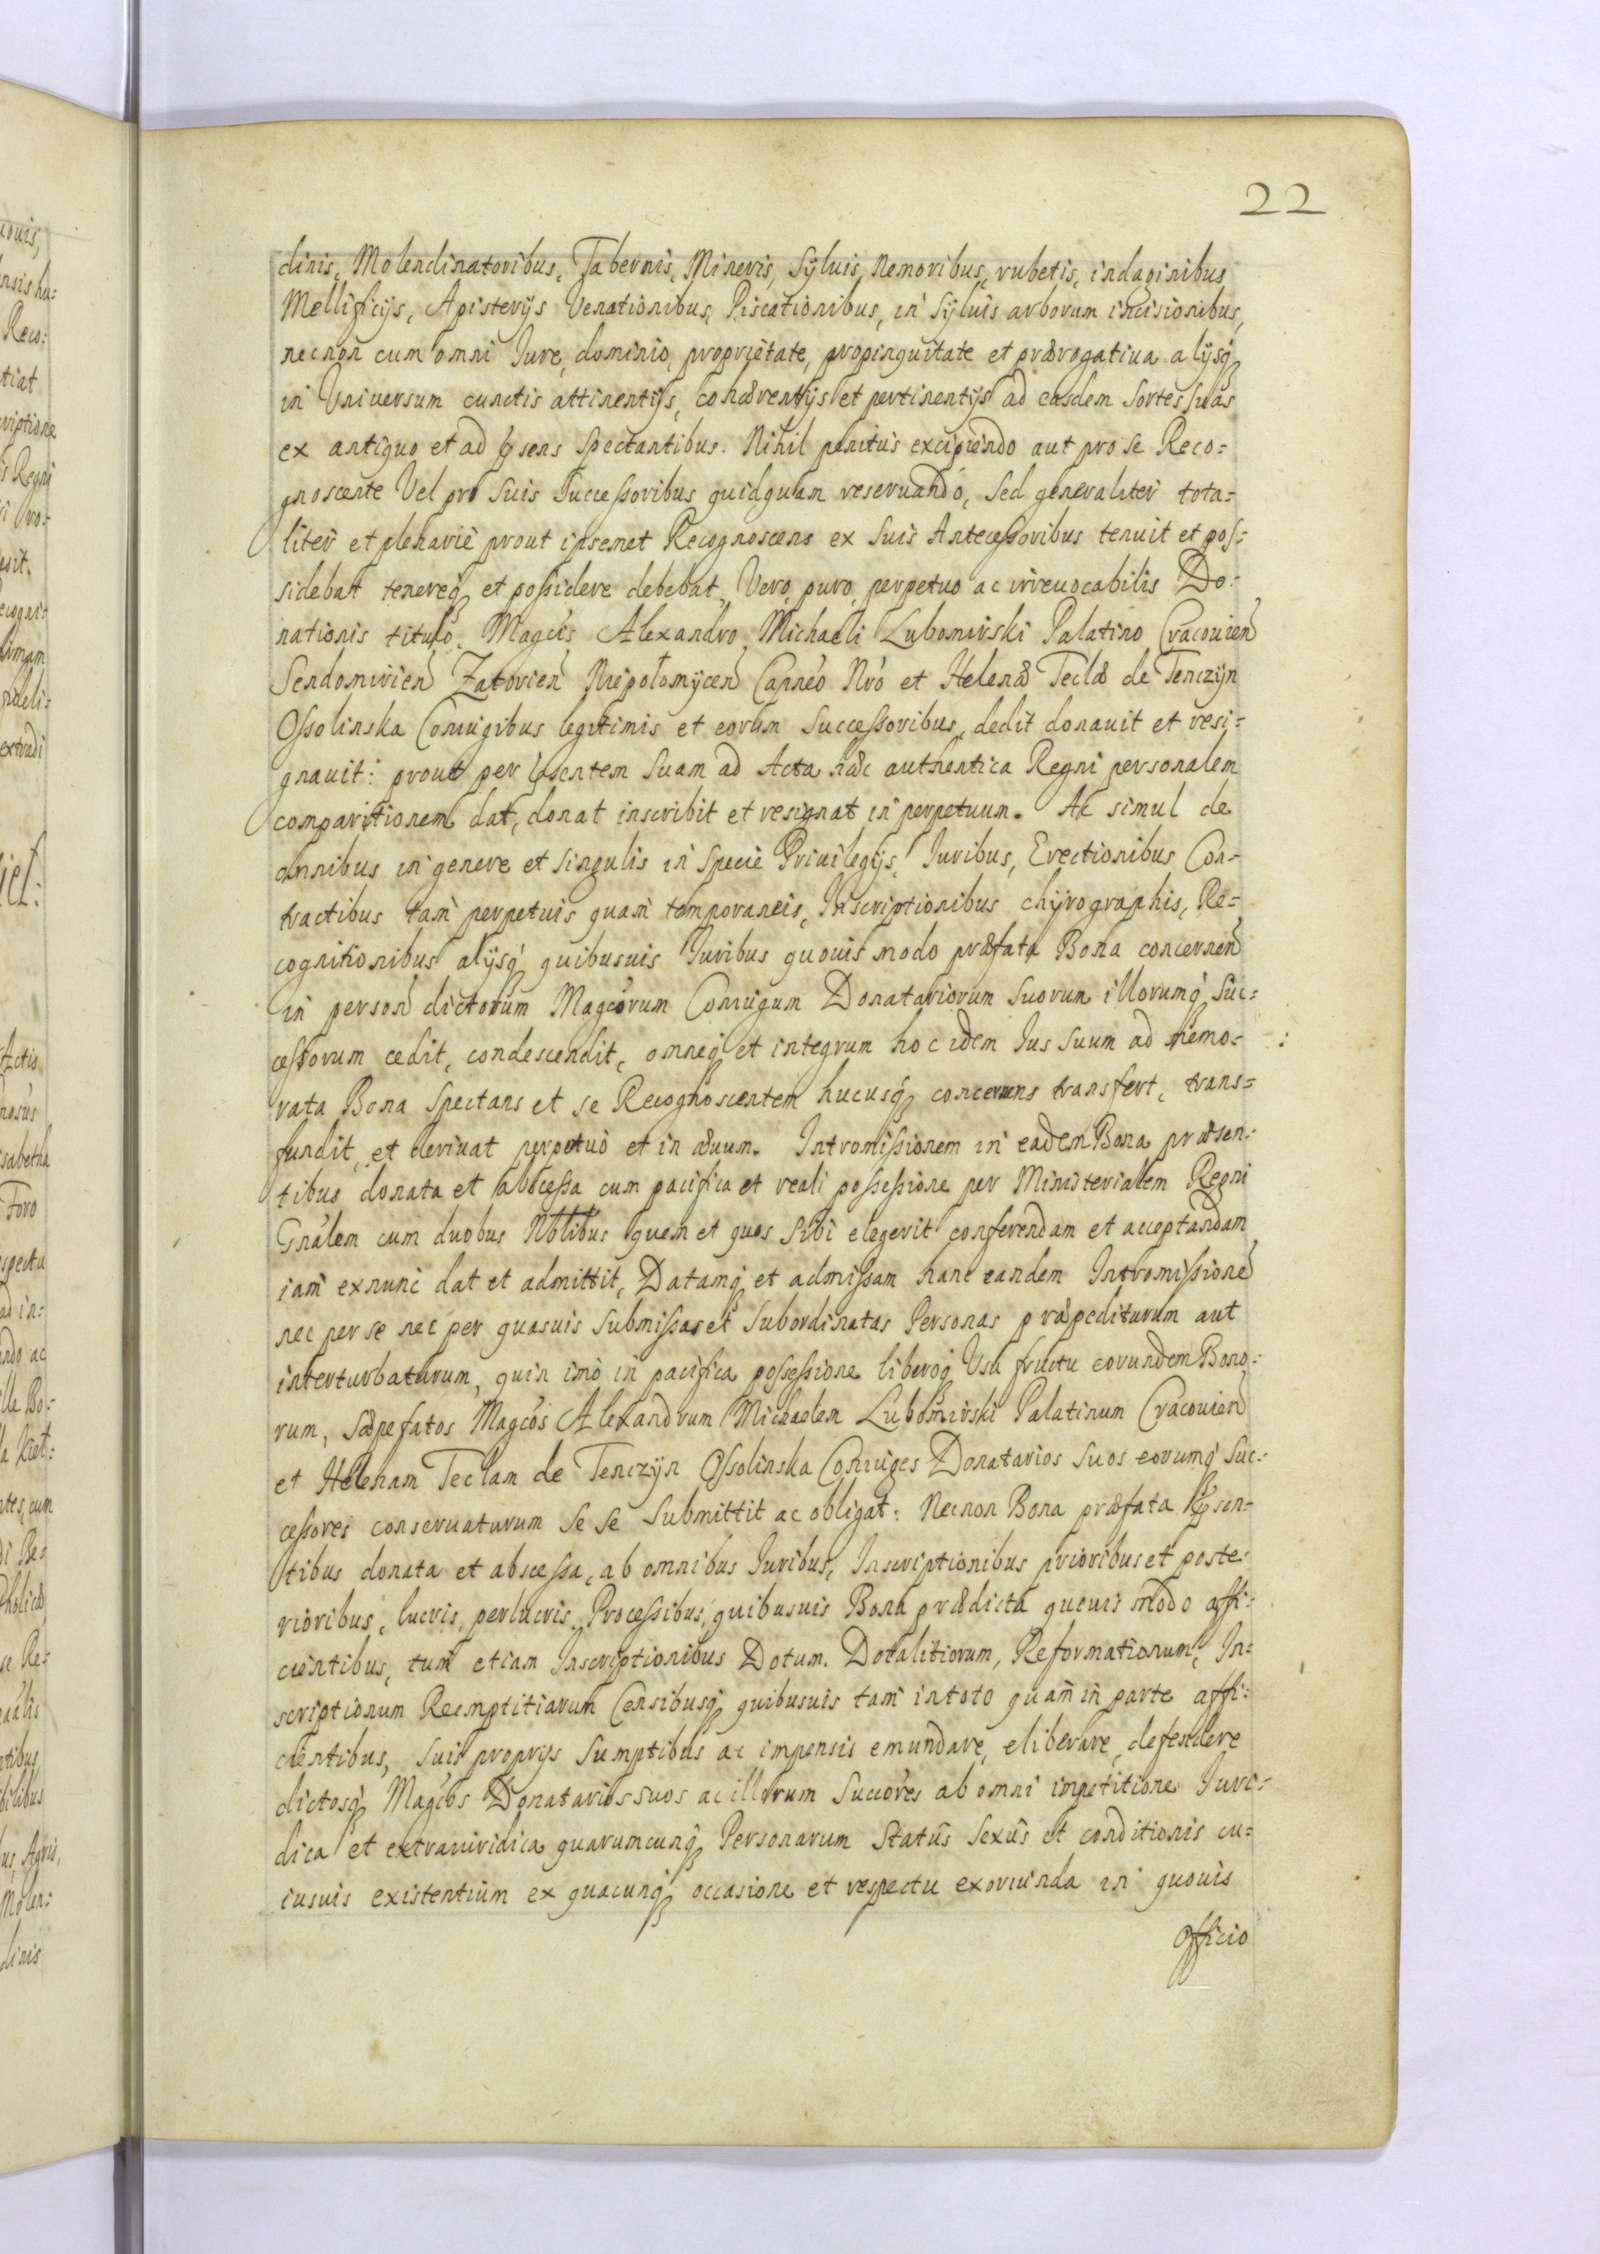 22
dinis, Molendinatoribus, Tabernis, Mineris, Syluis, Nemoribus, rubetis, indaginibus
Mellificijs, Apisterijs Venationibus, Piscationibus, in Syluis arborum incisionibus,
necnon cum omni Iure, dominio, proprietate, propinquitate et prærogatiua alijsq́
in Vniuersum cunctis attinentijs, cohærentijs et pertinentijs ad easdem Sortes Suas
ex antiquo et ad pñsens Spectantibus. Nihil penitus excipiendo aut pro se Reco-
gnoscente Vel pro Suis Successoribus quidquam reseruando, Sed generaliter tota-
liter et plenarie prout ipsemet Recognoscens ex Suis Antecessoribus tenuit et pos-
sidebat tenereq́ et possidere debebat, Vero, puro, perpetuo ac irreuocabilis Do-
nationis titulo. Magcis Alexandro Michaeli Lubomirski Palatino Cracouien
Sendomirien Zatorien Niepołomycen Capneo Nro et Helenæ Teclæ de Tenczyn
Ossolinska Coniugibus legitimis et eorum Successoribus, dedit donauit et resi-
gnauit: prout per pñsentem Suam ad Acta hæc authentica Regni personalem
comparitionem dat, donat inscribit et resignat in perpetuum. Ac simul de
omnibus in genere et singulis in Specie Priuilegijs, Iuribus, Erectionibus Con-
tractibus tam perpetuis quam temporaneis, Inscriptionibus chyrographis, Re-
cognitionibus alijsq́ quibusuis Iuribus quouis modo præfata Bona concernen
in person dictorum Magcorum Coniugum Donatariorum Suorum illorumq́ Suc-
cessorum cedit, condescendit, omneq́ et integrum hoc idem Ius Suum ad Memo-
rata Bona Spectans et se Recognoscentem hucusq́ concernens transfert, trans-
fundit, et deriuat perpetuo et in æuum. Intromissionem in eadem Bona præsen-
tibus donata et abscessa cum pacifica et reali possessione per Ministerialem Regni
Gnalem cum duobus Nobilibus quem et quos Sibi elegerit conferendam et acceptandam
iam exnunc dat et admittit, Datamq́ et admissam hanc eandem Intromissione
nec per se nec per quasuis Submissas et Subordinatas Personas præpediturum aut
interturbaturum, quin imo in pacifica possessione liberoq́ Vsu fructu eorundem Bono-
rum, Sæpefatos Magcos Alexandrum Michaelem Lubomirski Palatinum Cracouien
et Helenam Teclam de Tenczyn Ossolinska Coniuges Donatarios Suos eorumq́ Suc-
cessores conseruaturum Se Se Submittit ac obligat: Necnon Bona præfata pñsen-
tibus donata et abscessa, ab omnibus Iuribus, Inscriptionibus prioribus et poste-
rioribus, lucris, perlucris, Processibus, quibusuis Bona prædicta quouis modo affi-
cientibus, tum etiam Inscriptionibus Dotum. Dotalitiorum, Reformationum, In-
scriptionum Reemptitiarum Censibusq́ quibusuis tam intoto quam in parte affi-
cientibus, Suis proprijs Sumptibus ac impensis emundare, eliberare, defendere
dictosq́ Magcos Donatarios suos ac illorum Succores ab omni impetitione Iuri-
dica et extraiuridica quarumcunq́ Personarum Status Sexus et conditionis cu-
iusuis existentium ex quacunq́ occasione et respectu exoriunda in quouis
Officio